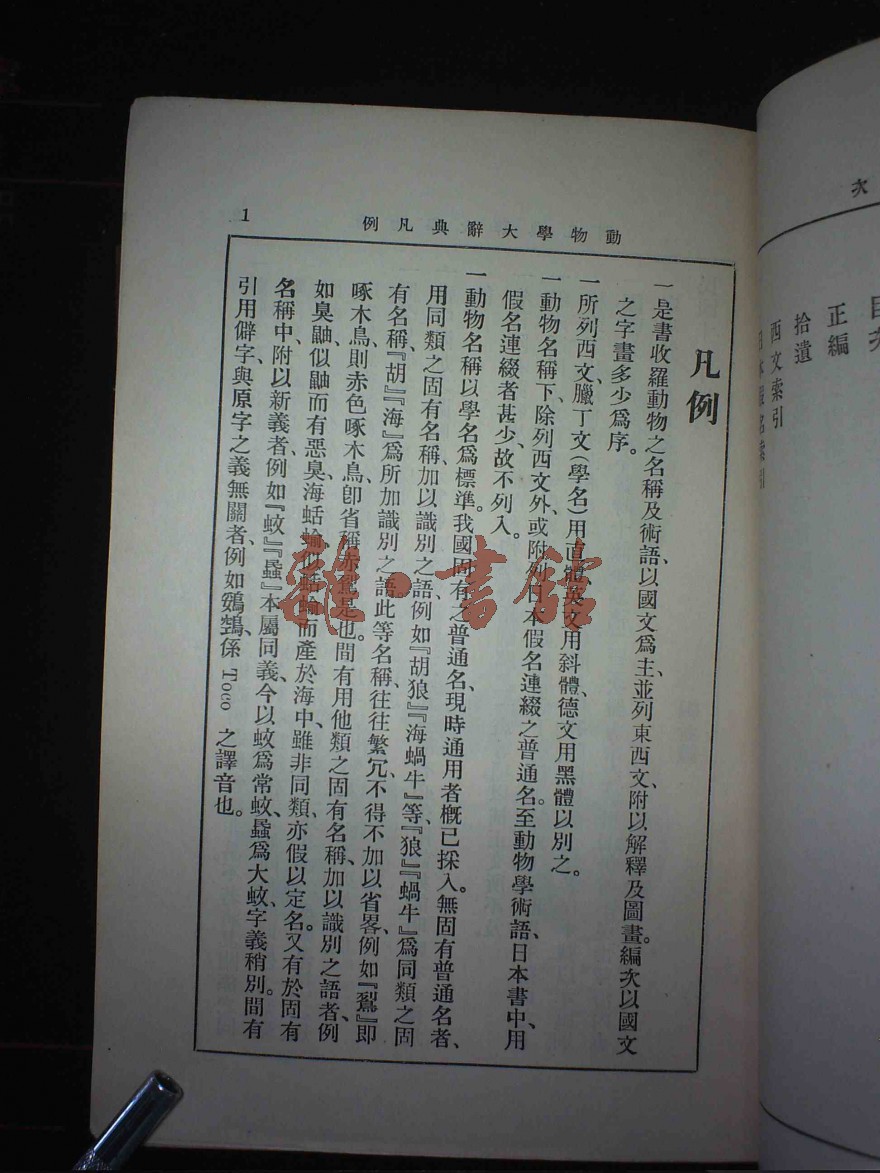 動物學大辭典凡例
1
凡例
一是書收羅動物之名稱及術語、以國文爲主、並列東西文、附以解釋及圖畫。編次以國文
之字畫多少爲序。
一所列西文、臘丁文(學名)用直體、英文用斜體、德文用黑體以別之。
一動物名稱下、除列西文外、或附列日本假名連綴之普通名。至動物學術語、日本書中、用
假名連綴者甚少、故不列入。
一動物名稱以學名爲標準。我國固有之普通名、現時通用者概已採入。無固有普通名者、
用同類之固有名稱、加以識別之語、例如『胡狼』『海蝸牛』等、『狼』『蝸牛』爲同類之固
有名稱、『胡』『海』爲所加識別之語。此等名稱、往往繁冗、不得不加以省畧、例如『鴷』即
啄木鳥、則赤色啄木鳥、卽省稱赤鴷是也。間有用他類之固有名稱、加以識別之語者、例
如臭鼬似鼬而有惡臭、海蛞蝓似蛞蝓而產於海中、雖非同類、亦假以定名。又有於固有
名稱中、附以新義者、例如『蚊』『蟁』本屬同義、今以蚊爲常蚊、蟁爲大蚊、字義稍別。間有
引用僻字、與原字之義無關者、例如鵎鵼、係 Toco 之譯音也。
龍·書館
次
目次
正編
拾遺
西文索引
日本假名索引